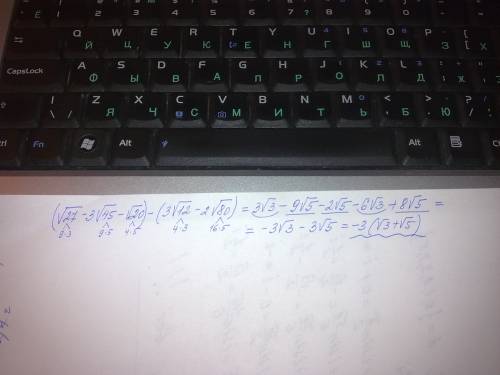 Q W E R T Y U I O P
Й Ц У К Е Н Г Ш Щ З Х
CapsLock A S D F G H J K L
Ф Ы В А П Р О Л Д
Z X C V B N M
Я Ч С М И Т Ь Б Ю
Fn Alt Alt Ctrl
(√27 - 3√45 - √20) - (3√12 - 2√80) = 3√3 - 9√5 - 2√5 - 6√3 + 8√5 =
9·3 9·5 4·5 4·3 16·5
= -3√3 - 3√5 = -3(√3+√5)